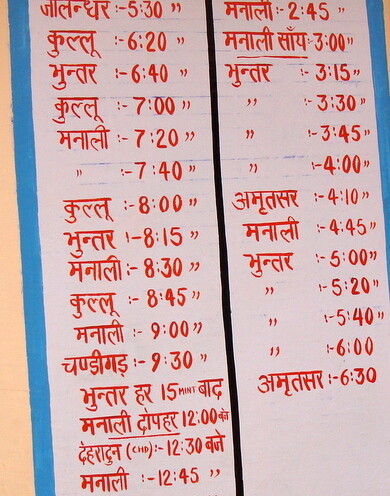 जालन्धर :- 5:30 ”
कुल्लू :- 6:20 ”
भुन्तर :- 6:40 ”
कुल्लू :- 7:00 ”
मनाली :- 7:20 ”
” :- 7:40 ”
कुल्लू :- 8:00 ”
भुन्तर :- 8:15 ”
मनाली :- 8:30 ”
कुल्लू :- 8:45 ”
मनाली :- 9:00 ”
चण्डीगड़ :- 9:30 ”
भुन्तर हर 15 MINT बाद
मनाली दोपहर 12:00 बजे
देहरादुन (CHD) :- 12:30 बजे
मनाली :- 12:45 ”
मनाली :- 2:45 ”
मनाली साँय :- 3:00 ”
भुन्तर :- 3:15 ”
” :- 3:30 ”
” :- 3:45 ”
” :- 4:00 ”
अमृतसर :- 4:10 ”
मनाली :- 4:45 ”
भुन्तर :- 5:00 ”
” :- 5:20 ”
” :- 5:40 ”
” :- 6:00
अमृतसर :- 6:30